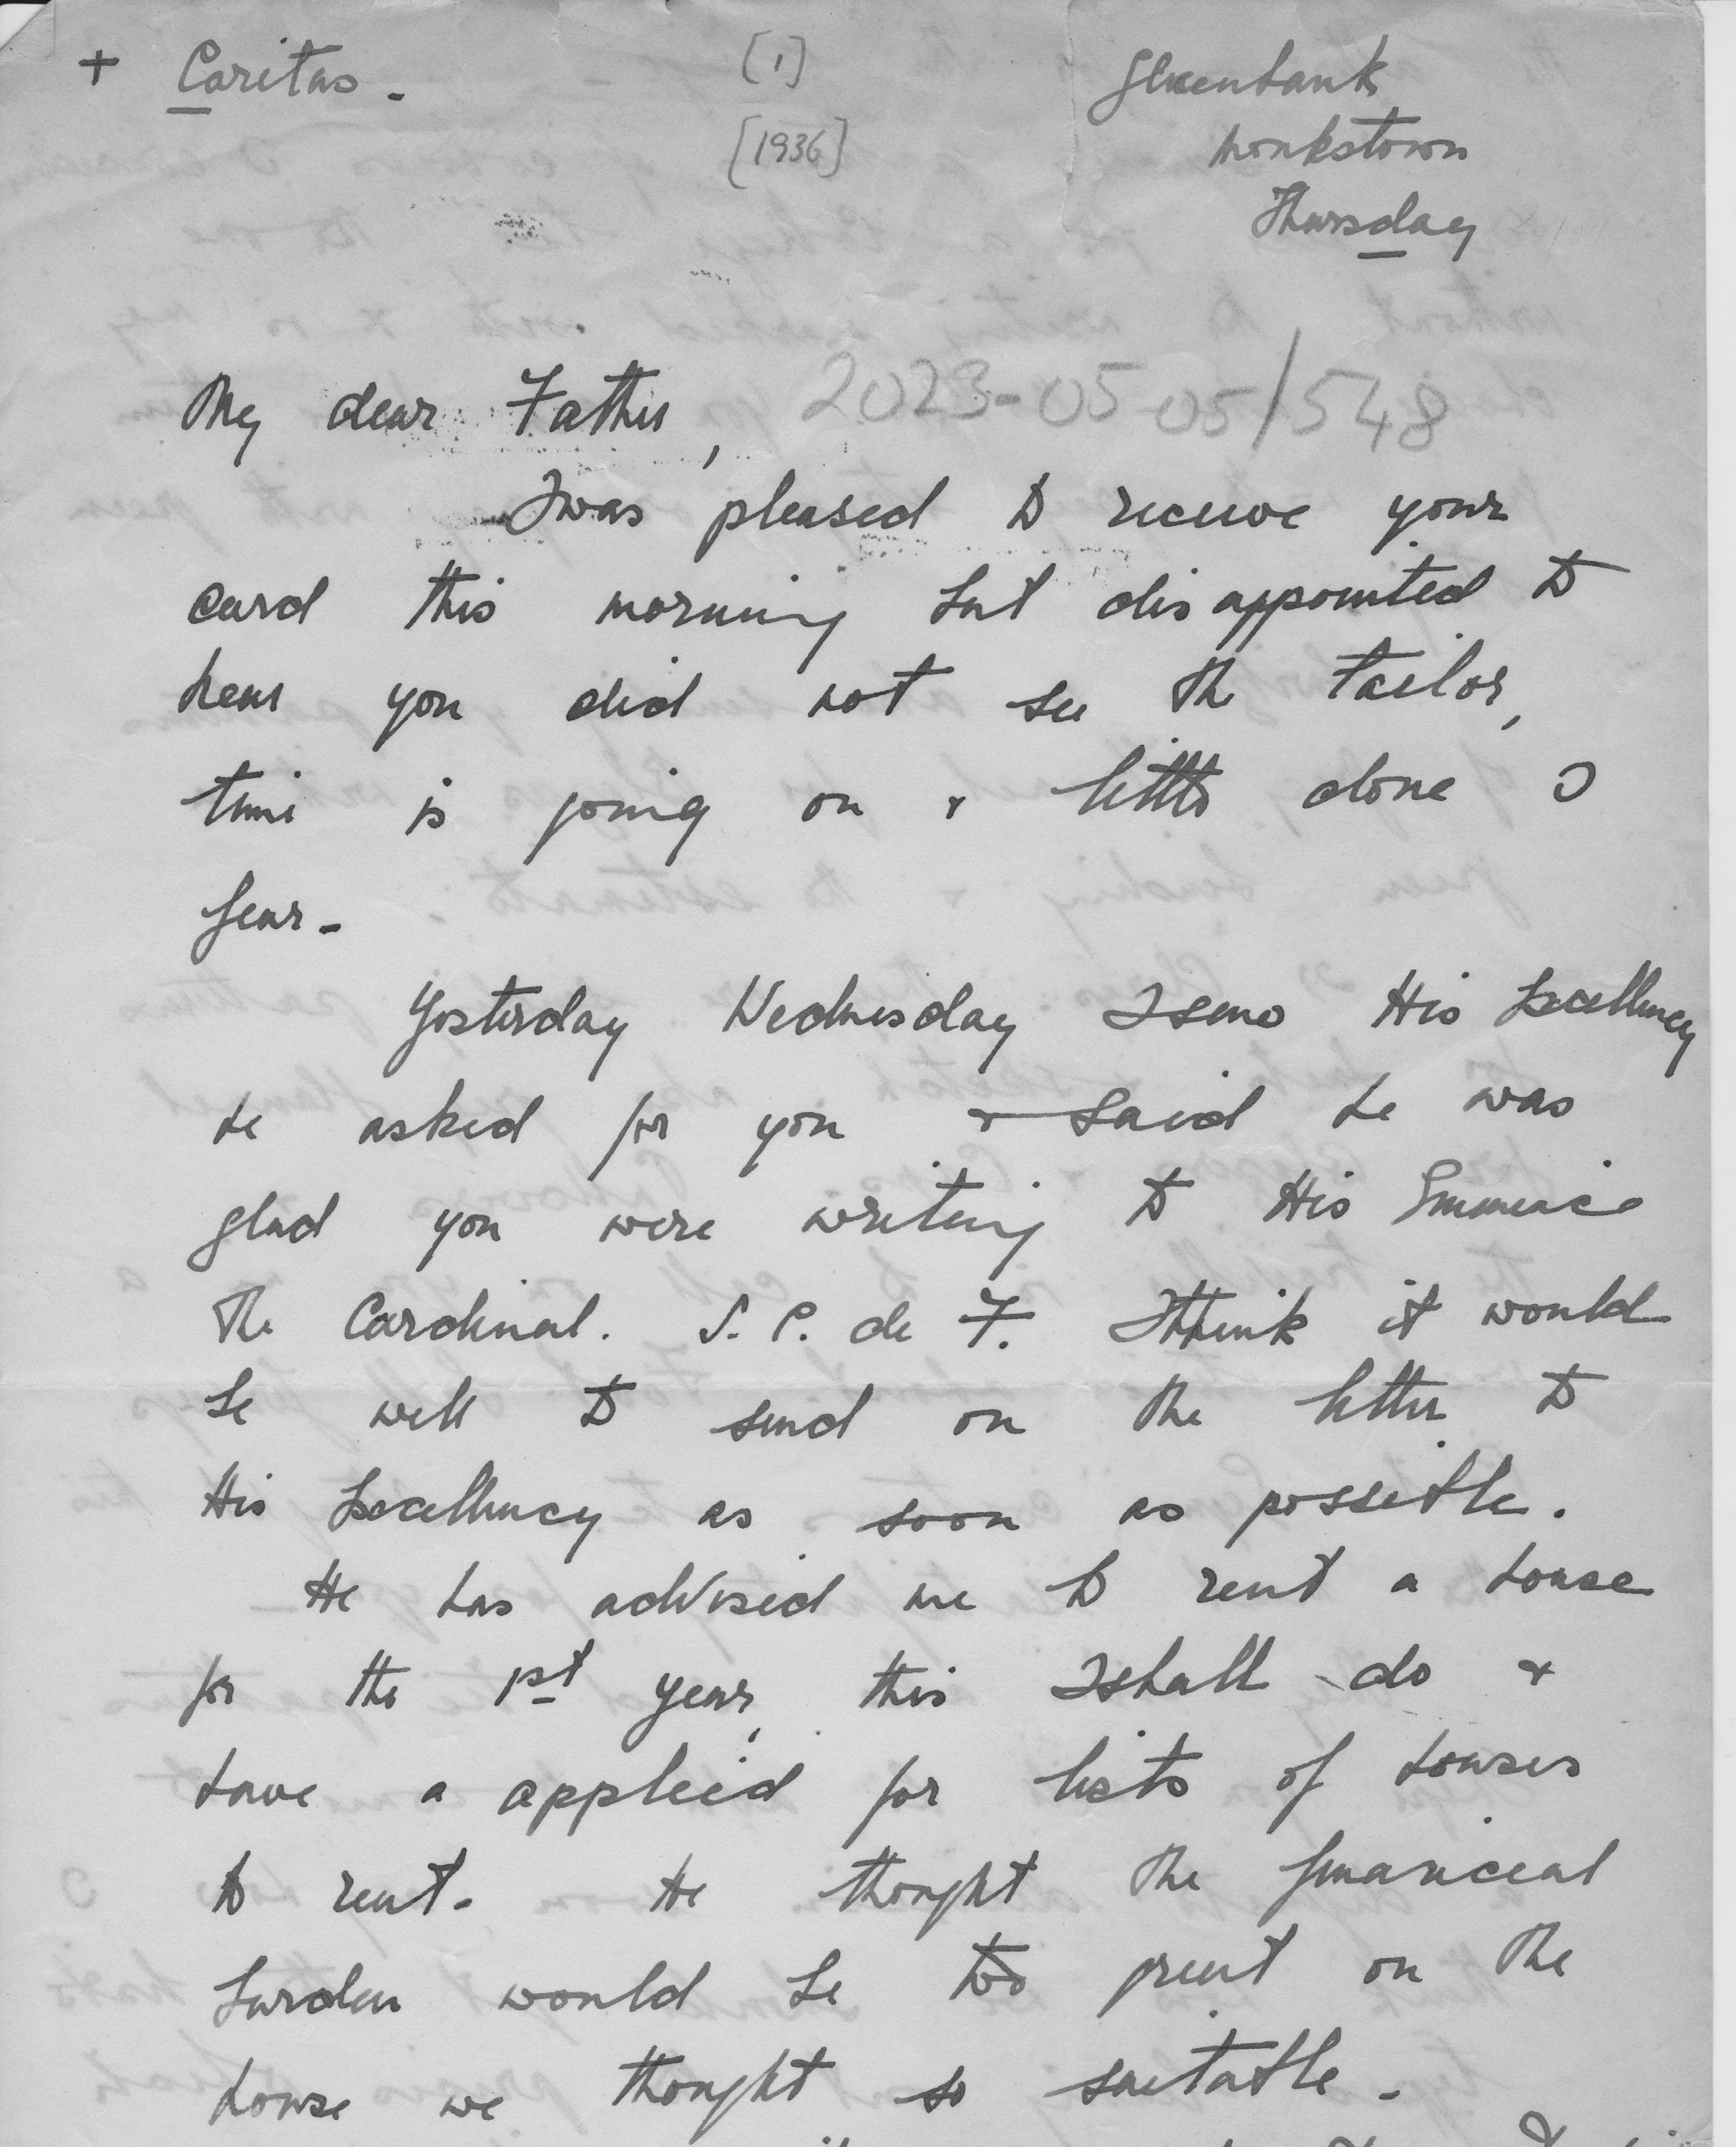 + Caritas -
[1]
[1936]
Glenbank
Monkstown
Thursday
2023-05-05/548
My dear Father,
I was pleased to receive your
card this morning but disappointed to
hear you did not see the tailor,
time is going on & little done I
fear -
Yesterday Wednesday I saw His Excellency
he asked for you & said he was
glad you were writing to His Eminence
the Cardinal. S. C. de F. I think it would
be well to send on the letter to
His Excellency as soon as possible.
He has advised me to rent a house
for the 1st year, this I shall do &
have a applied for lists of houses
to rent. He thought the financial
burden would be too great on the
house we thought so suitable -